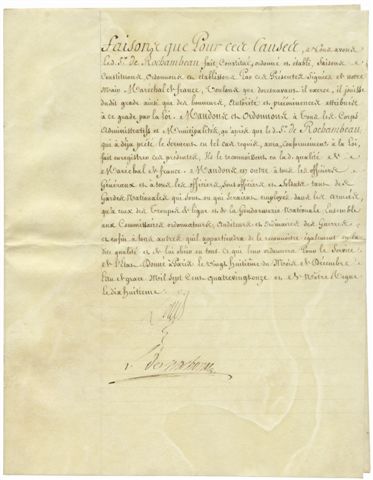 Faisons que Pour ces Causes, Nous avons
led. Sr. de Rochambeau fait, Constitué, ordonné et établi, faisons
Constituons Ordonnons et établissons Par ces Présentes Signées de notre
Main Marechal de france, Voulons que dorenavant il exerce, il jouisse
dudit grade ainsi que des honneurs, Autorité et prééminences attribués
à ce grade par la loi. Mandons et Ordonnons à tous les Corps
Administratifs et Municipalités, qu'après que led. Sr. de Rochambeau,
qui a déja prêté le serment en tel cas requis, aura, conformément à la loi,
fait enregistrer ces présentes, Ils le reconnoissent en lad. qualité de
Marechal de france. Mandons en outre à tous les officiers
Généraux et à tous les officiers, sous officiers et Soldats tant des
Gardes Nationales qui sont ou qui seraient employés dans les armées,
qu'à ceux des Troupes de ligne et de la Gendarmerie Nationale, Ensemble
aux Commissaires ordonnateurs, Auditeurs et ordinaires des Guerres
et enfin à tous autres qu'il appartiendra de le reconnoitre également en la
dite qualité et de lui obéir en tout ce qui leur ordonnera Pour le Service
de l'Etat. Donné à Paris le Vingt huitième du Mois de Décembre
l'an de grace Mil Sept Cent quatrevingt onze et de Notre Regne
le dix huitieme.